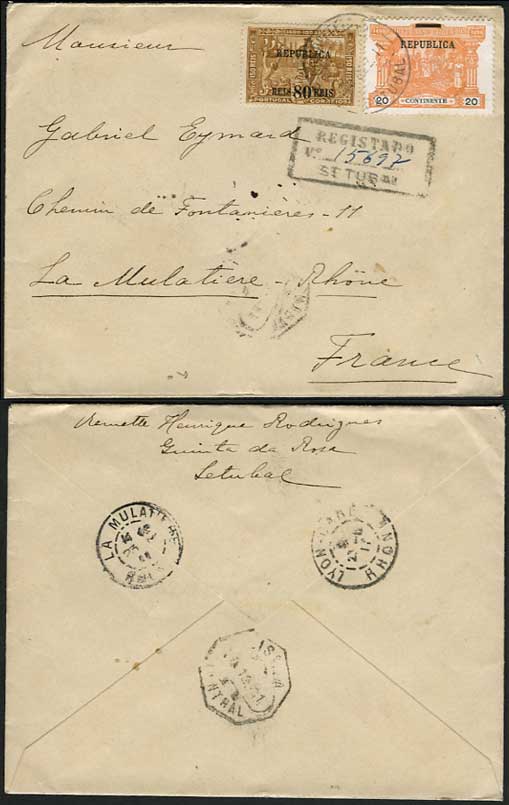 Monsieur
REPUBLICA
REIS 80 REIS
PORTUGAL CORREIOS
REPUBLICA
20 CONTINENTE 20
REGISTADO
Nº 15692
SETUBAL
Gabriel Eymard
Chemin de Fontanières - 11
La Mulatière - Rhône
France
Remette Henrique Rodrigues
Quinta da Rosa
Setubal
LA MULATIERE
RHONE
LYON GARE
RHONE
LISBOA
CENTRAL